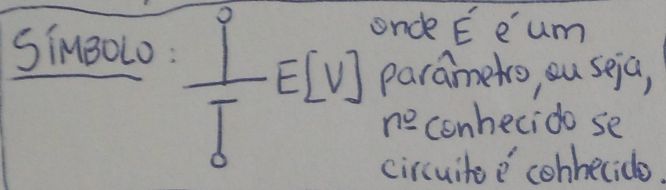 SÍMBOLO:
E[V]
onde É é um
parâmetro, ou seja,
nº conhecido se
circuito é conhecido.